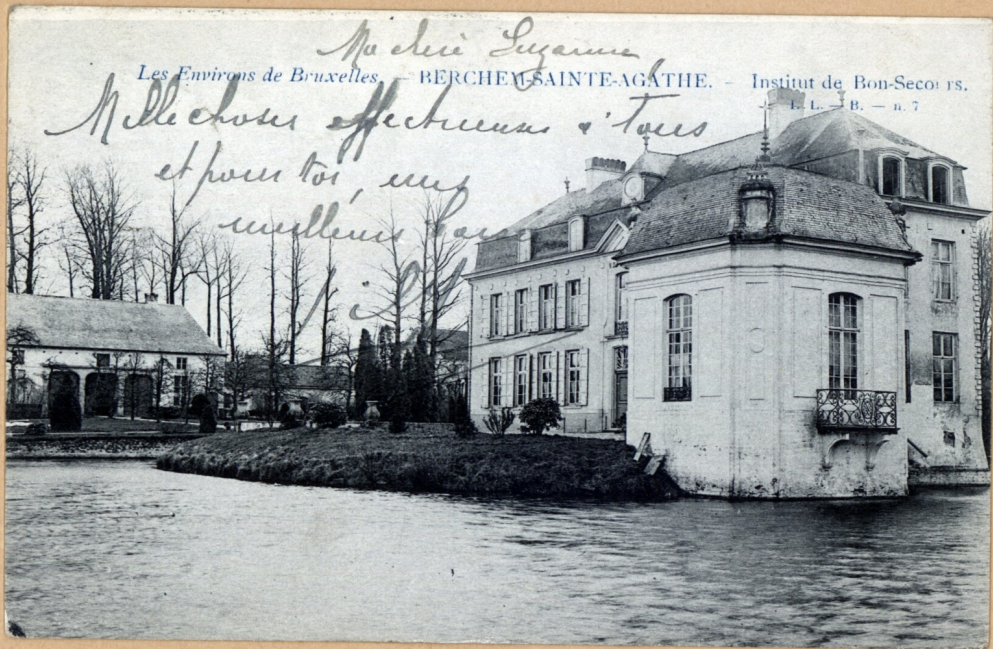 Ma chère Suzanne
Les Environs de Bruxelles. — BERCHEM-SAINTE-AGATHE. — Institut de Bon-Secours.
L. L. B. — n. 7
Mille choses affectueuses à tous
et pour toi, mes
meilleurs